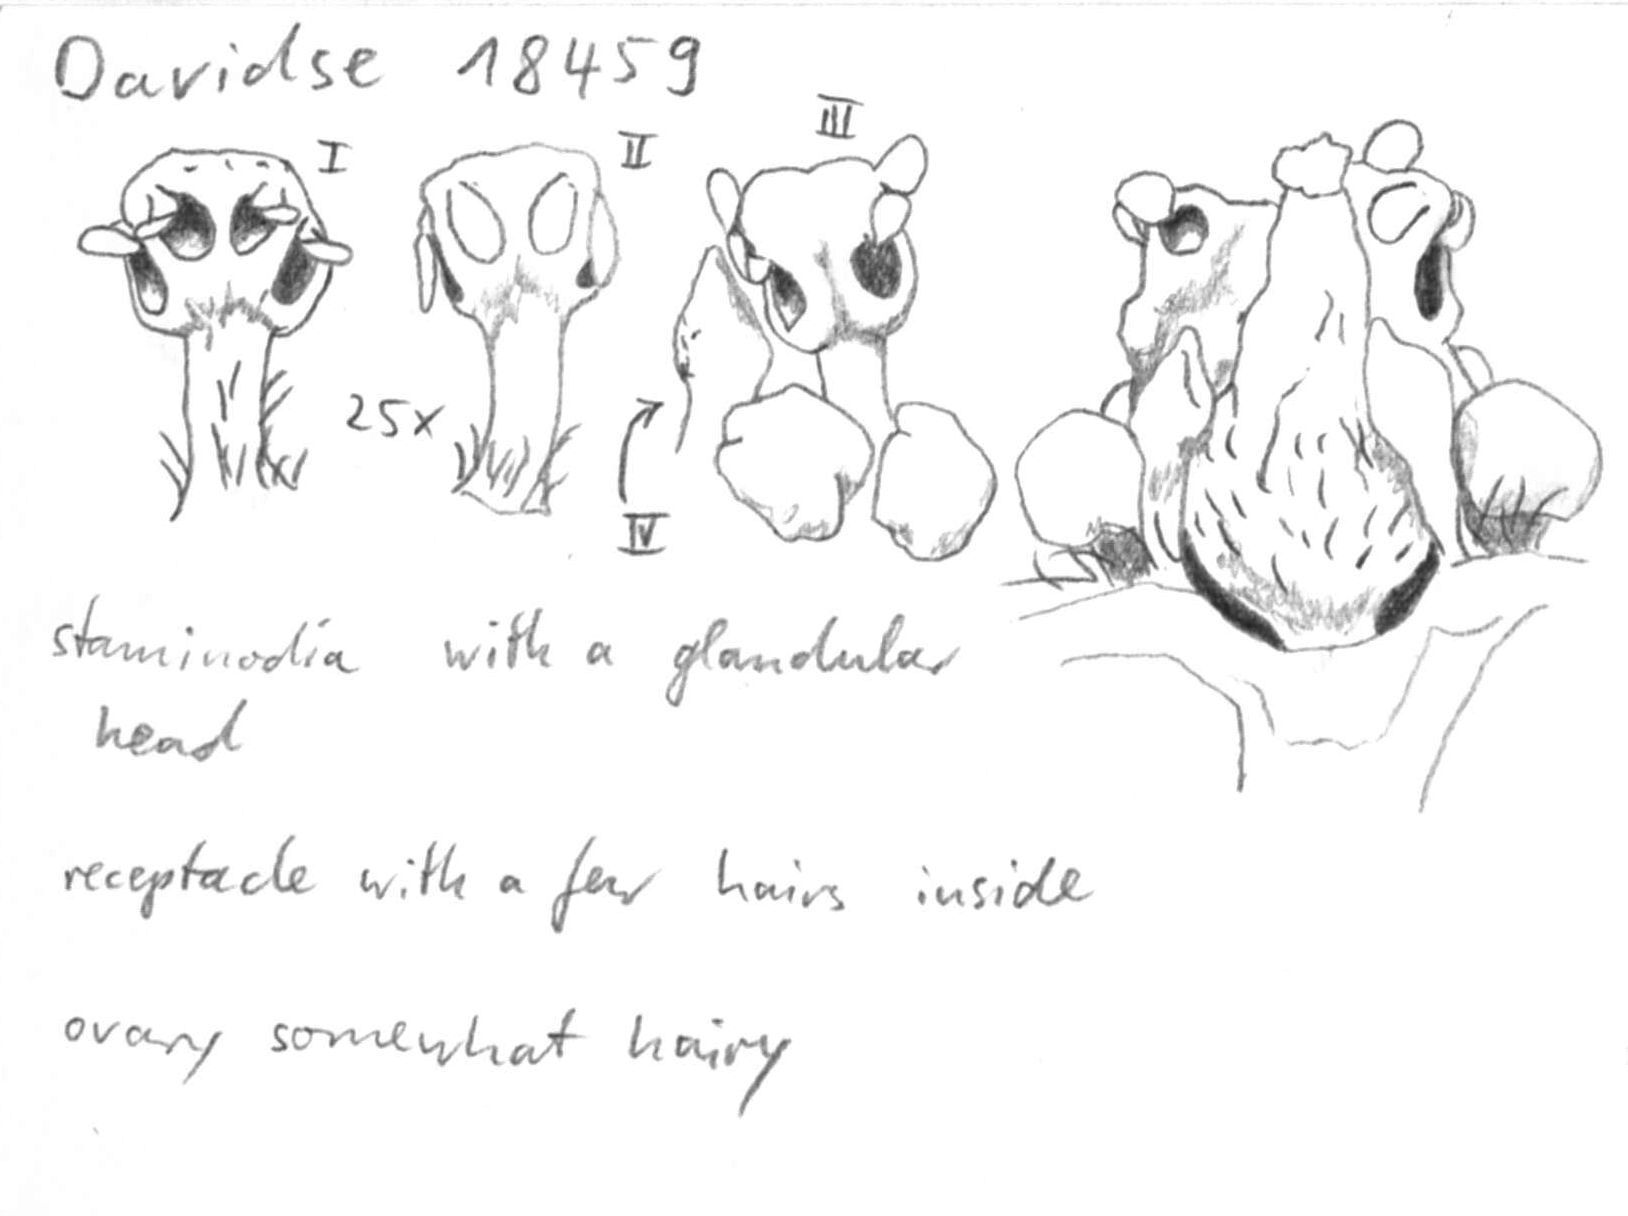 Davidse 18459
I
II
III
25x
IV
staminodia with a glandular
head
receptacle with a few hairs inside
ovary somewhat hairy